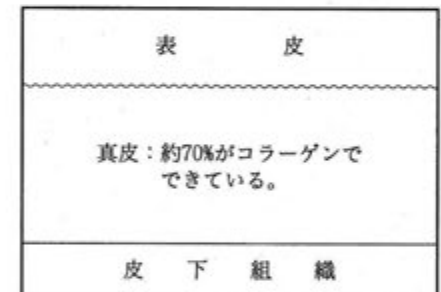 表皮
真皮：約70%がコラーゲンで
できている。
皮下組織